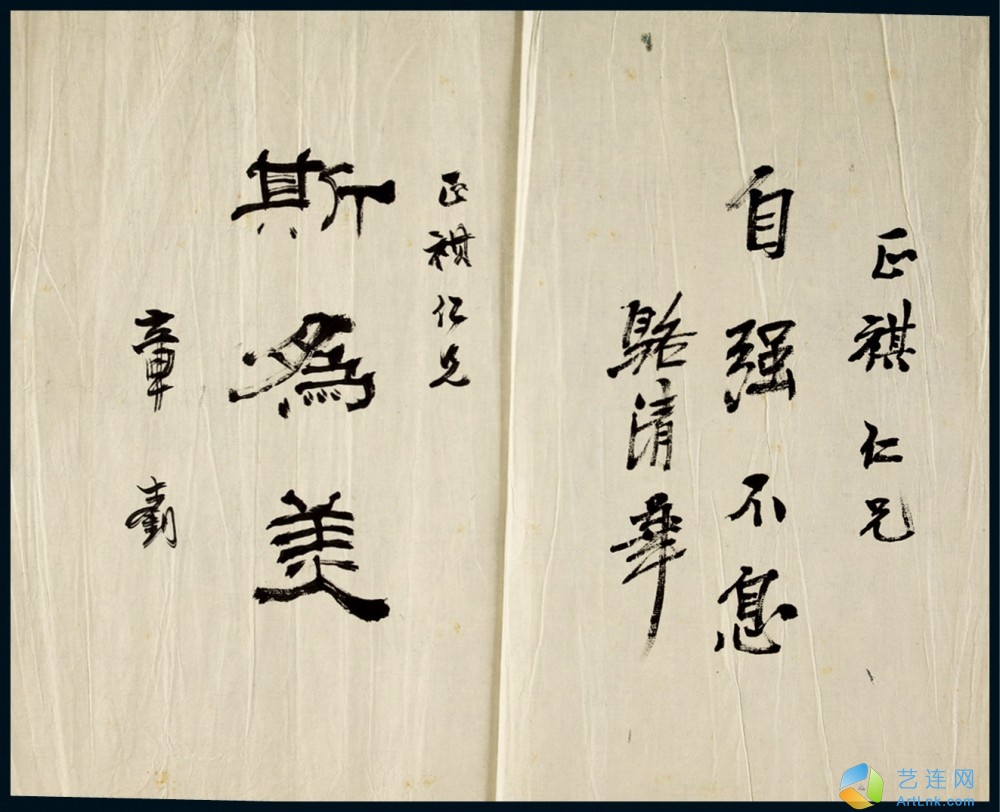 正祺仁兄
自强不息
駱清華
正祺仁兄
斯為美
章
艺连网
ArtLnk.com